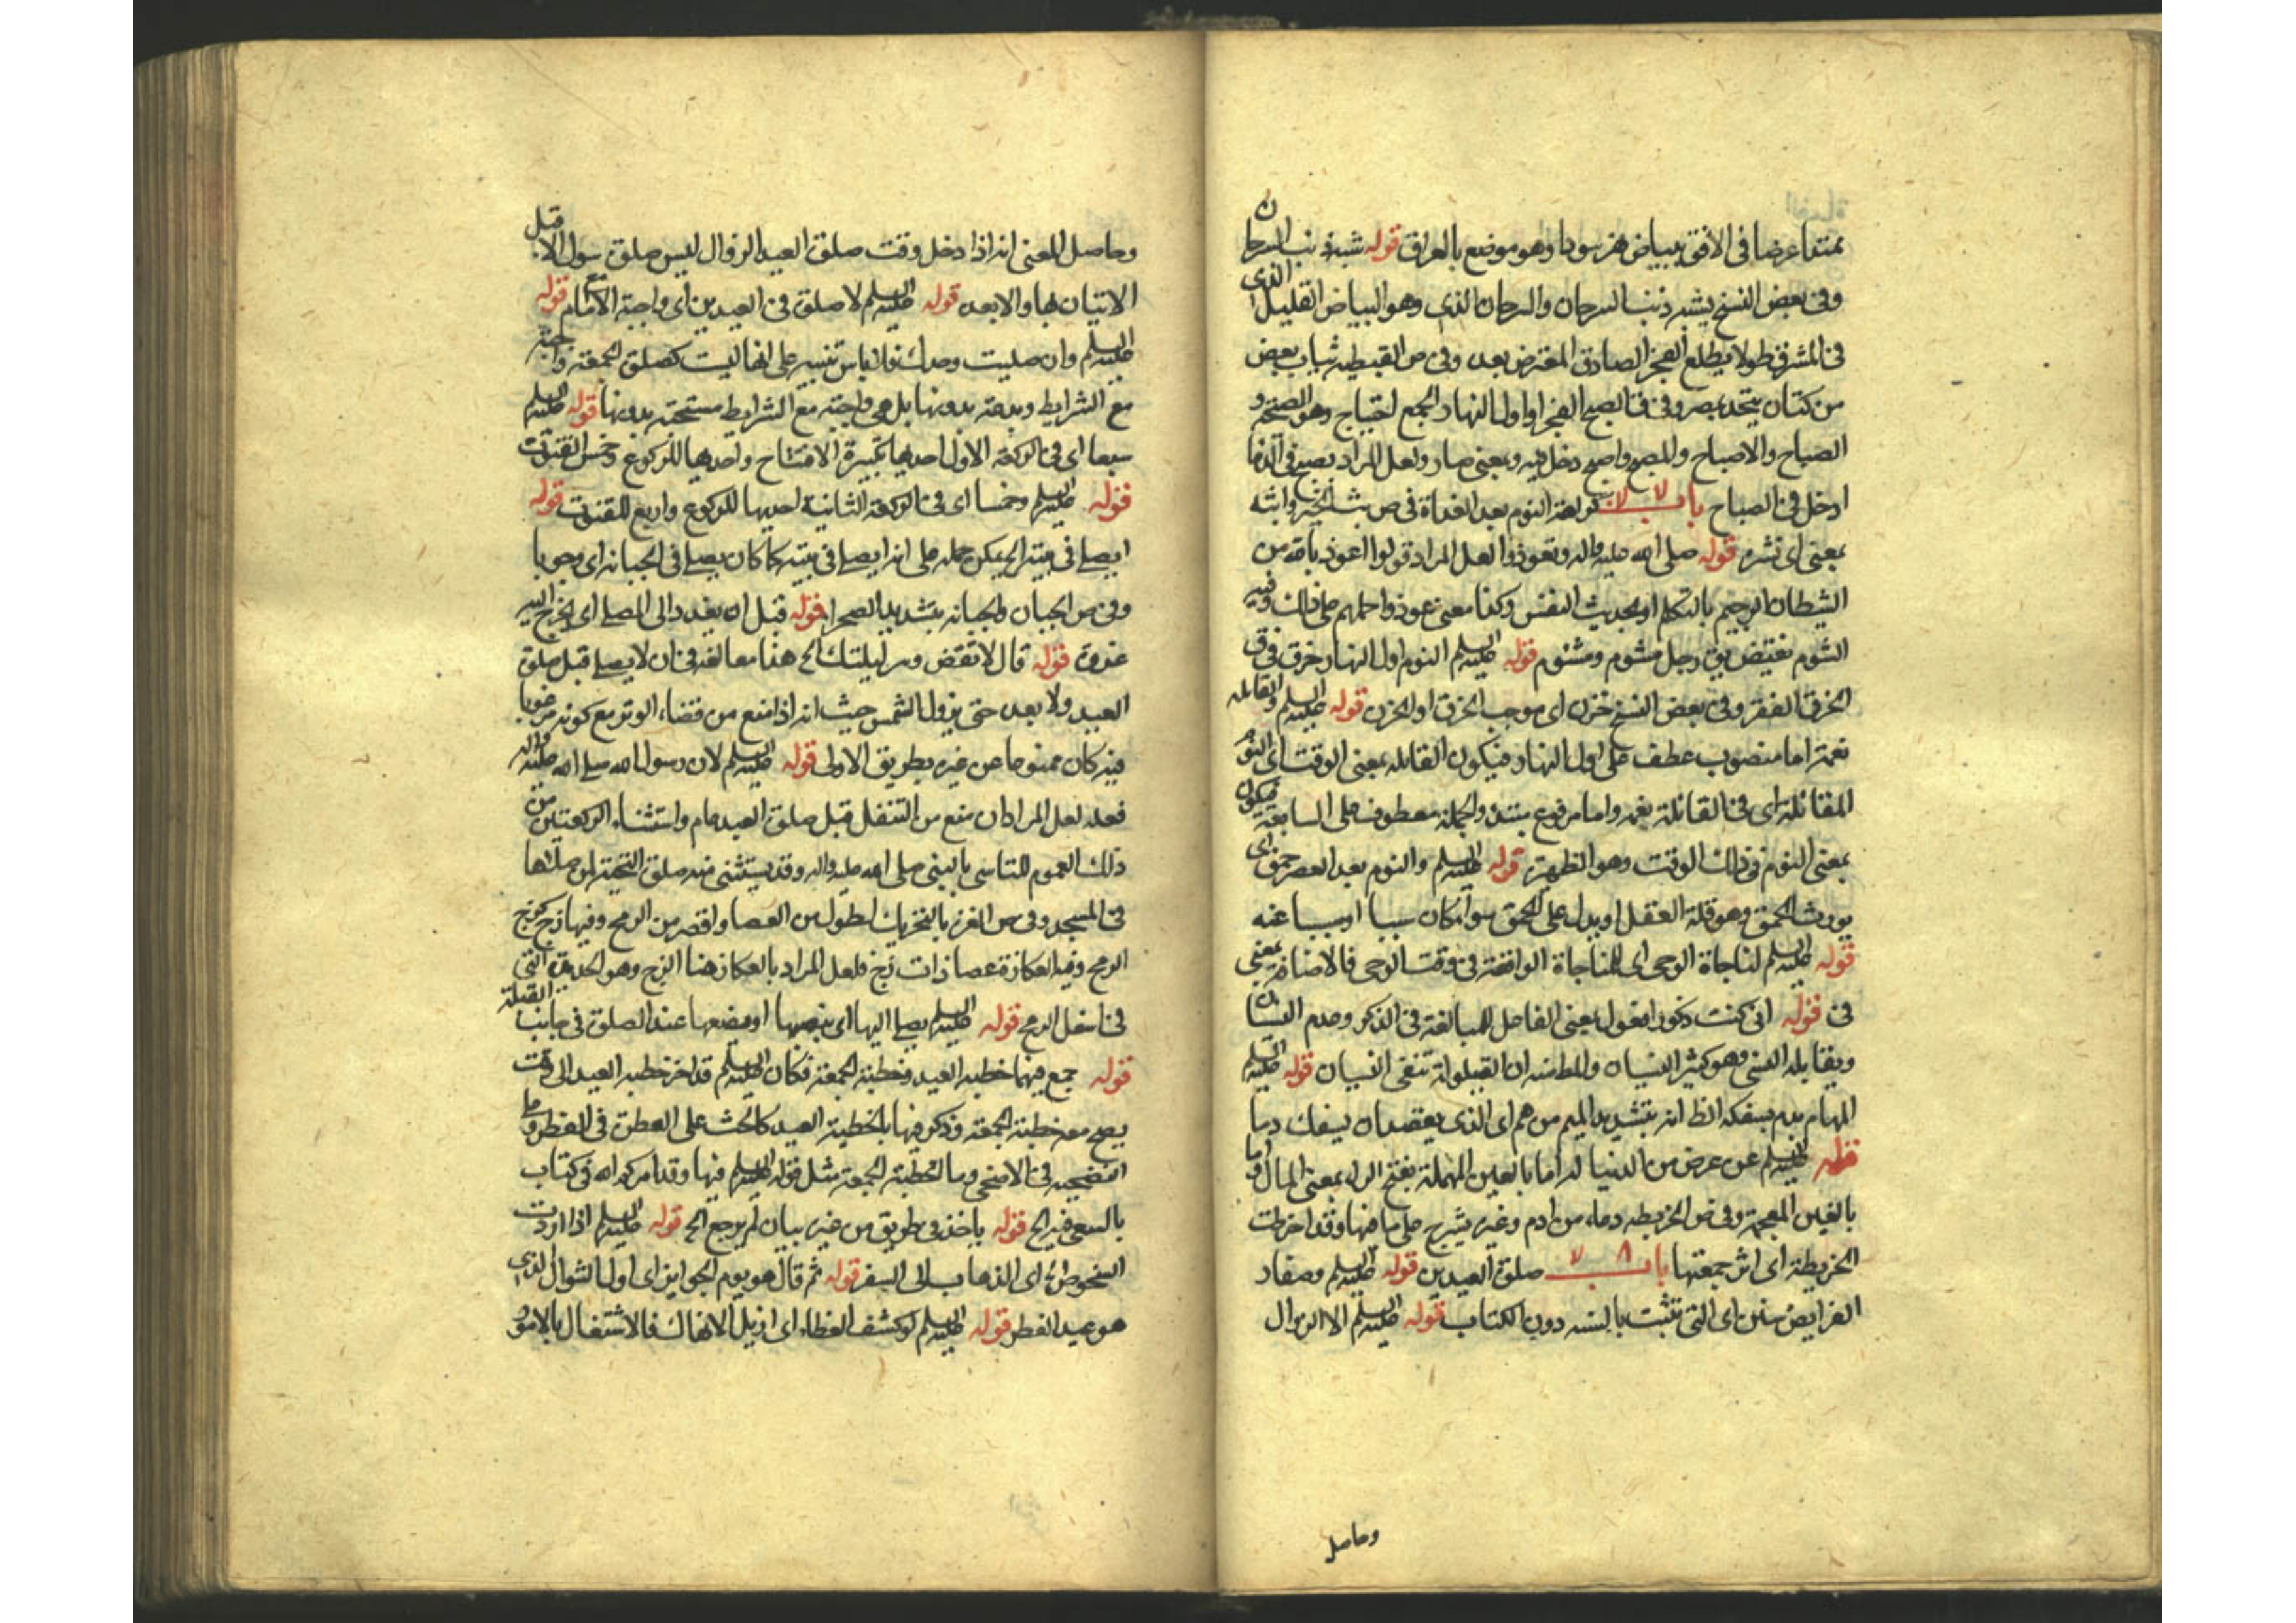 ممتدا عرضا فى الافق ببياض نهر سوداء وهو موضع بالعراق قوله شبه ذنب السرحان
وفى بعض النسخ يشبه ذنب السرحان والسرحان الذى وهو البياض القليل الذى
فى المشرق طولا يطلع الفجر الصادق المعترض بعده وفى ص القبطيه ثياب بيض
من كتان يتخذ بمصر وفى ق الصبح الفجر او اول النهار الجمع اصباح وهو الصبحة و
الصباح والاصباح والمصبح واصبح دخل فيه وبمعنى صار ولعل المراد يصبح فى
ادخل فى الصباح باب كراهة النوم بعد الغداة فى ص بث الخبر وابثه
بمعنى اى نشره قوله صلى الله عليه واله وتعوذوا لعل المراد قولوا اعوذ بالله من
الشيطان الرجيم بالتكلم او بحديث النفس وكذا معنى عوذوا احملهم على ذلك وفيه
الشوم نقيض يق رجل مشوم ومشئوم قوله عليه السلم النوم اول النهار خرق فى ق
الخرق الفقر وفى بعض النسخ خزن اى موجب الخرق او الخزن قوله عليه السلم والقايله
نعمة اما منصوب عطف على اول النهار فيكون القايله بمعنى الوقت اى النوم
المقائلة اى فى القائلة نعمه واما مرفوع مبتدء والجملة معطوف على السابقة فيكون
بمعنى النوم فى ذلك الوقت وهو الظهيرة قوله عليه السلم والنوم بعد العصر حمق اى
يورث الحمق وهو قلة العقل او يدل على الحمق سواء كان سببا او مسببا عنه
قوله عليه السلم لمناجاة الوحى اى للمناجاة الواقعة فى وقت الوحى فالاضافة بمعنى
فى قوله انى كنت ذكورا فعول بمعنى الفاعل للمبالغة فى الذكر وعدم النسيان
ويقابله النسى وهو كثير النسيان والمطلب ان القيلولة تنفى النسيان قوله عليه السلم
المهام بدم يسفكه الظ انه بتشديد الميم من هم اى الذى يقصد ان يسفك دما
قوله عليه السلم عن عرض من الدنيا له اما بالعين المهملة بفتح الراء بمعنى المال واما
بالغين المعجمة وفى ص الخريطه وعاء من ادم وغيره يشرج على ما فيها وقد اخرطت
الخريطة اى اشرجتها باب صلوة العيدين قوله عليه السلم وصفار
الفرايض سنن اى التى تثبت بالسنه دون الكتاب قوله عليه السلم الا الزوال
وحاصل
وحاصل المعنى انه اذا دخل وقت صلوة العيد الزوال ليس صلوة سوى الا قبل
الاتيان بها والا بعده قوله عليه السلم لا صلوة فى العيدين اى واجبة الا مع الامام قوله
عليه السلم وان صليت وحدك فلا باس تنبيه على انها ليست كصلوة الجمعة واجبة
مع الشرايط وبدعة بدونها بل هى واجبة مع الشرايط مستحبة بدونها قوله عليه السلم
سبعا اى فى الركعة الاولى احديها تكبيرة الافتتاح واحديها للركوع وخمس القنوت
قوله عليه السلم وخمسا اى فى الركعة الثانية احديها للركوع واربع للقنوت قوله
ايصلى فى بيته الخ يمكن حمله على انه ايصلى فى بيته كما كان يصلى فى الجبانه اى وجوبا
وفى ص الجبان والجبانه بتشديد الصحراء قوله قبل ان يغدو الى المصلى اى يخرج اليه
غدوة قوله قال لا تقض وتر ليلتك الخ هذا مبالغة فى ان لا يصلى قبل صلوة
العيد ولا بعده حتى يزول الشمس حيث انه اذا منع من قضاء الوتر مع كونه مرغوبا
فيه كان ممنوعا عن غيره بطريق الاولى قوله عليه السلم لان رسول الله صلى الله عليه واله
فعله لعل المراد ان منع من التنفل قبل صلوة العيد عام واستثناء الركعتين من
ذلك العموم للتاسى بالنبى صلى الله عليه واله وقد يستثنى منه صلوة التحية لو صليها
فى المسجد وفى ص العنزة بالتحريك اطول من العصا واقصر من الرمح وفيها زج كزج
الرمح وفيه العكازة عصا ذات زج فلعل المراد بالعكاز هنا الزج وهو الحديدة التى
فى اسفل الرمح قوله عليه السلم يصلى اليها اى ينصبها او يضعها عند الصلوة فى جانب القبلة
قوله جمع فيها خطبه العيد وخطبة الجمعة فكان عليه السلم قد اخر خطبه العيد الى وقت
يصح معه خطبة الجمعة وذكر فيها بالخطبة العيد كالحث على الفطرة فى الفطر وعلى
التضحيه فى الاضحى وما لخطبة الجمعة مثل قوله عليه السلم فيها وقد امركم الله فى كتاب
بالسعى فيه الخ قوله ياخذ فى طريق من غير بيان لم يرجع الخ قوله عليه السلم اذا اردت
الشخوص الخ اى الذهاب الى السفر قوله ثم قال هو يوم الجوايز اى اول الشوال الذى
هو عيد الفطر قوله عليه السلم لو كشف الغطاء اى ازيل الانهماك فالاشتغال بالامور